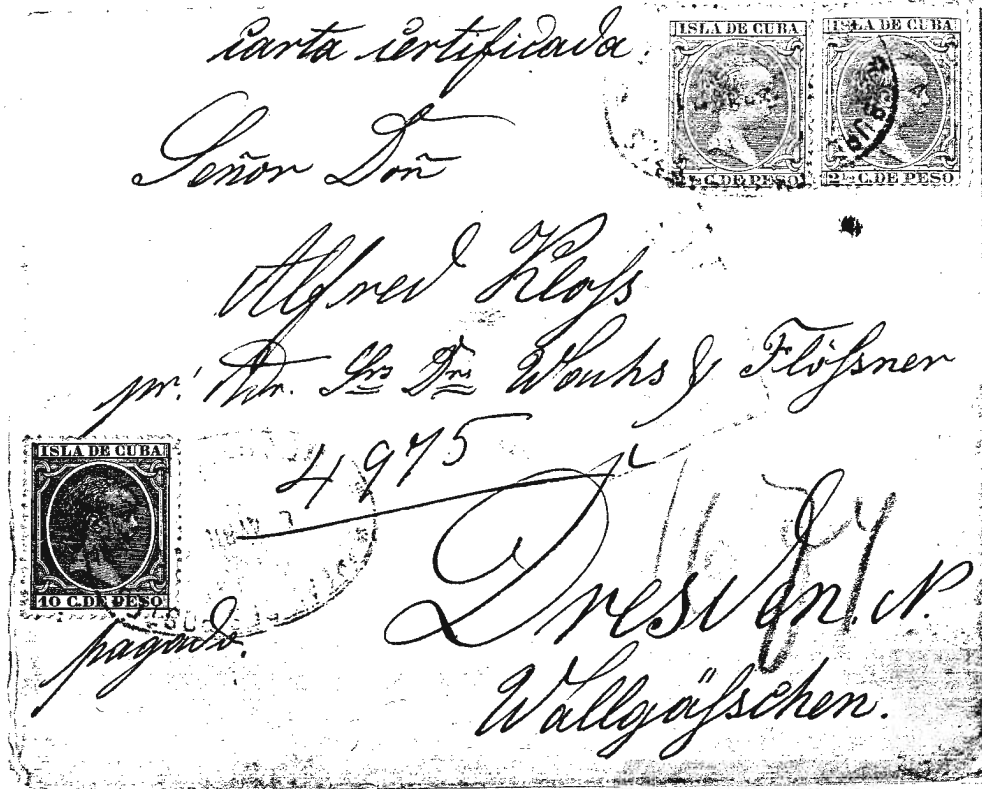 carta certificada.
ISLA DE CUBA
ISLA DE CUBA
2½ C. DE PESO
2½ C. DE PESO
Señor Don̄
Alfred Kloſs
pr. Adr. Srs Drs Wouhs & Flöſsner
4975
ISLA DE CUBA
10 C. DE PESO
pagado.
Dresden. N.
Wallgäſschen.